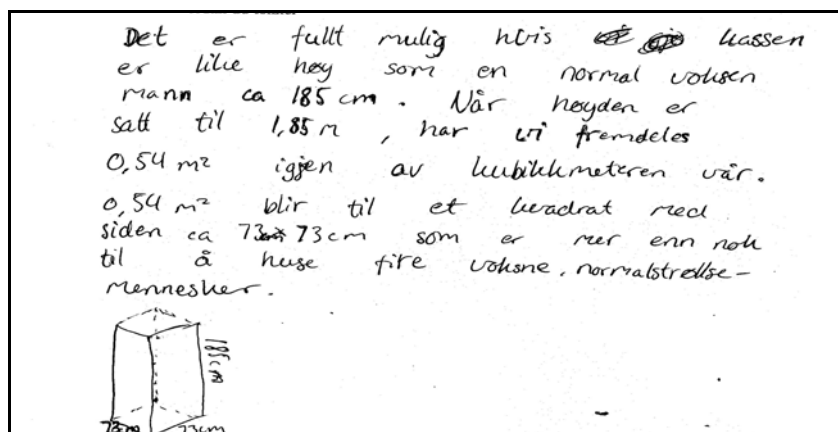 Det er fullt mulig hvis kassen
er like høy som en normal voksen
mann ca 185 cm. Når høyden er
satt til 1,85 m, har vi fremdeles
0,54 m² igjen av kubikkmeteren vår.
0,54 m² blir til et kvadrat med
siden ca 73 cm som er mer enn nok
til å huse fire voksne, normalstrellse-
mennesker.
185cm
73cm 73cm